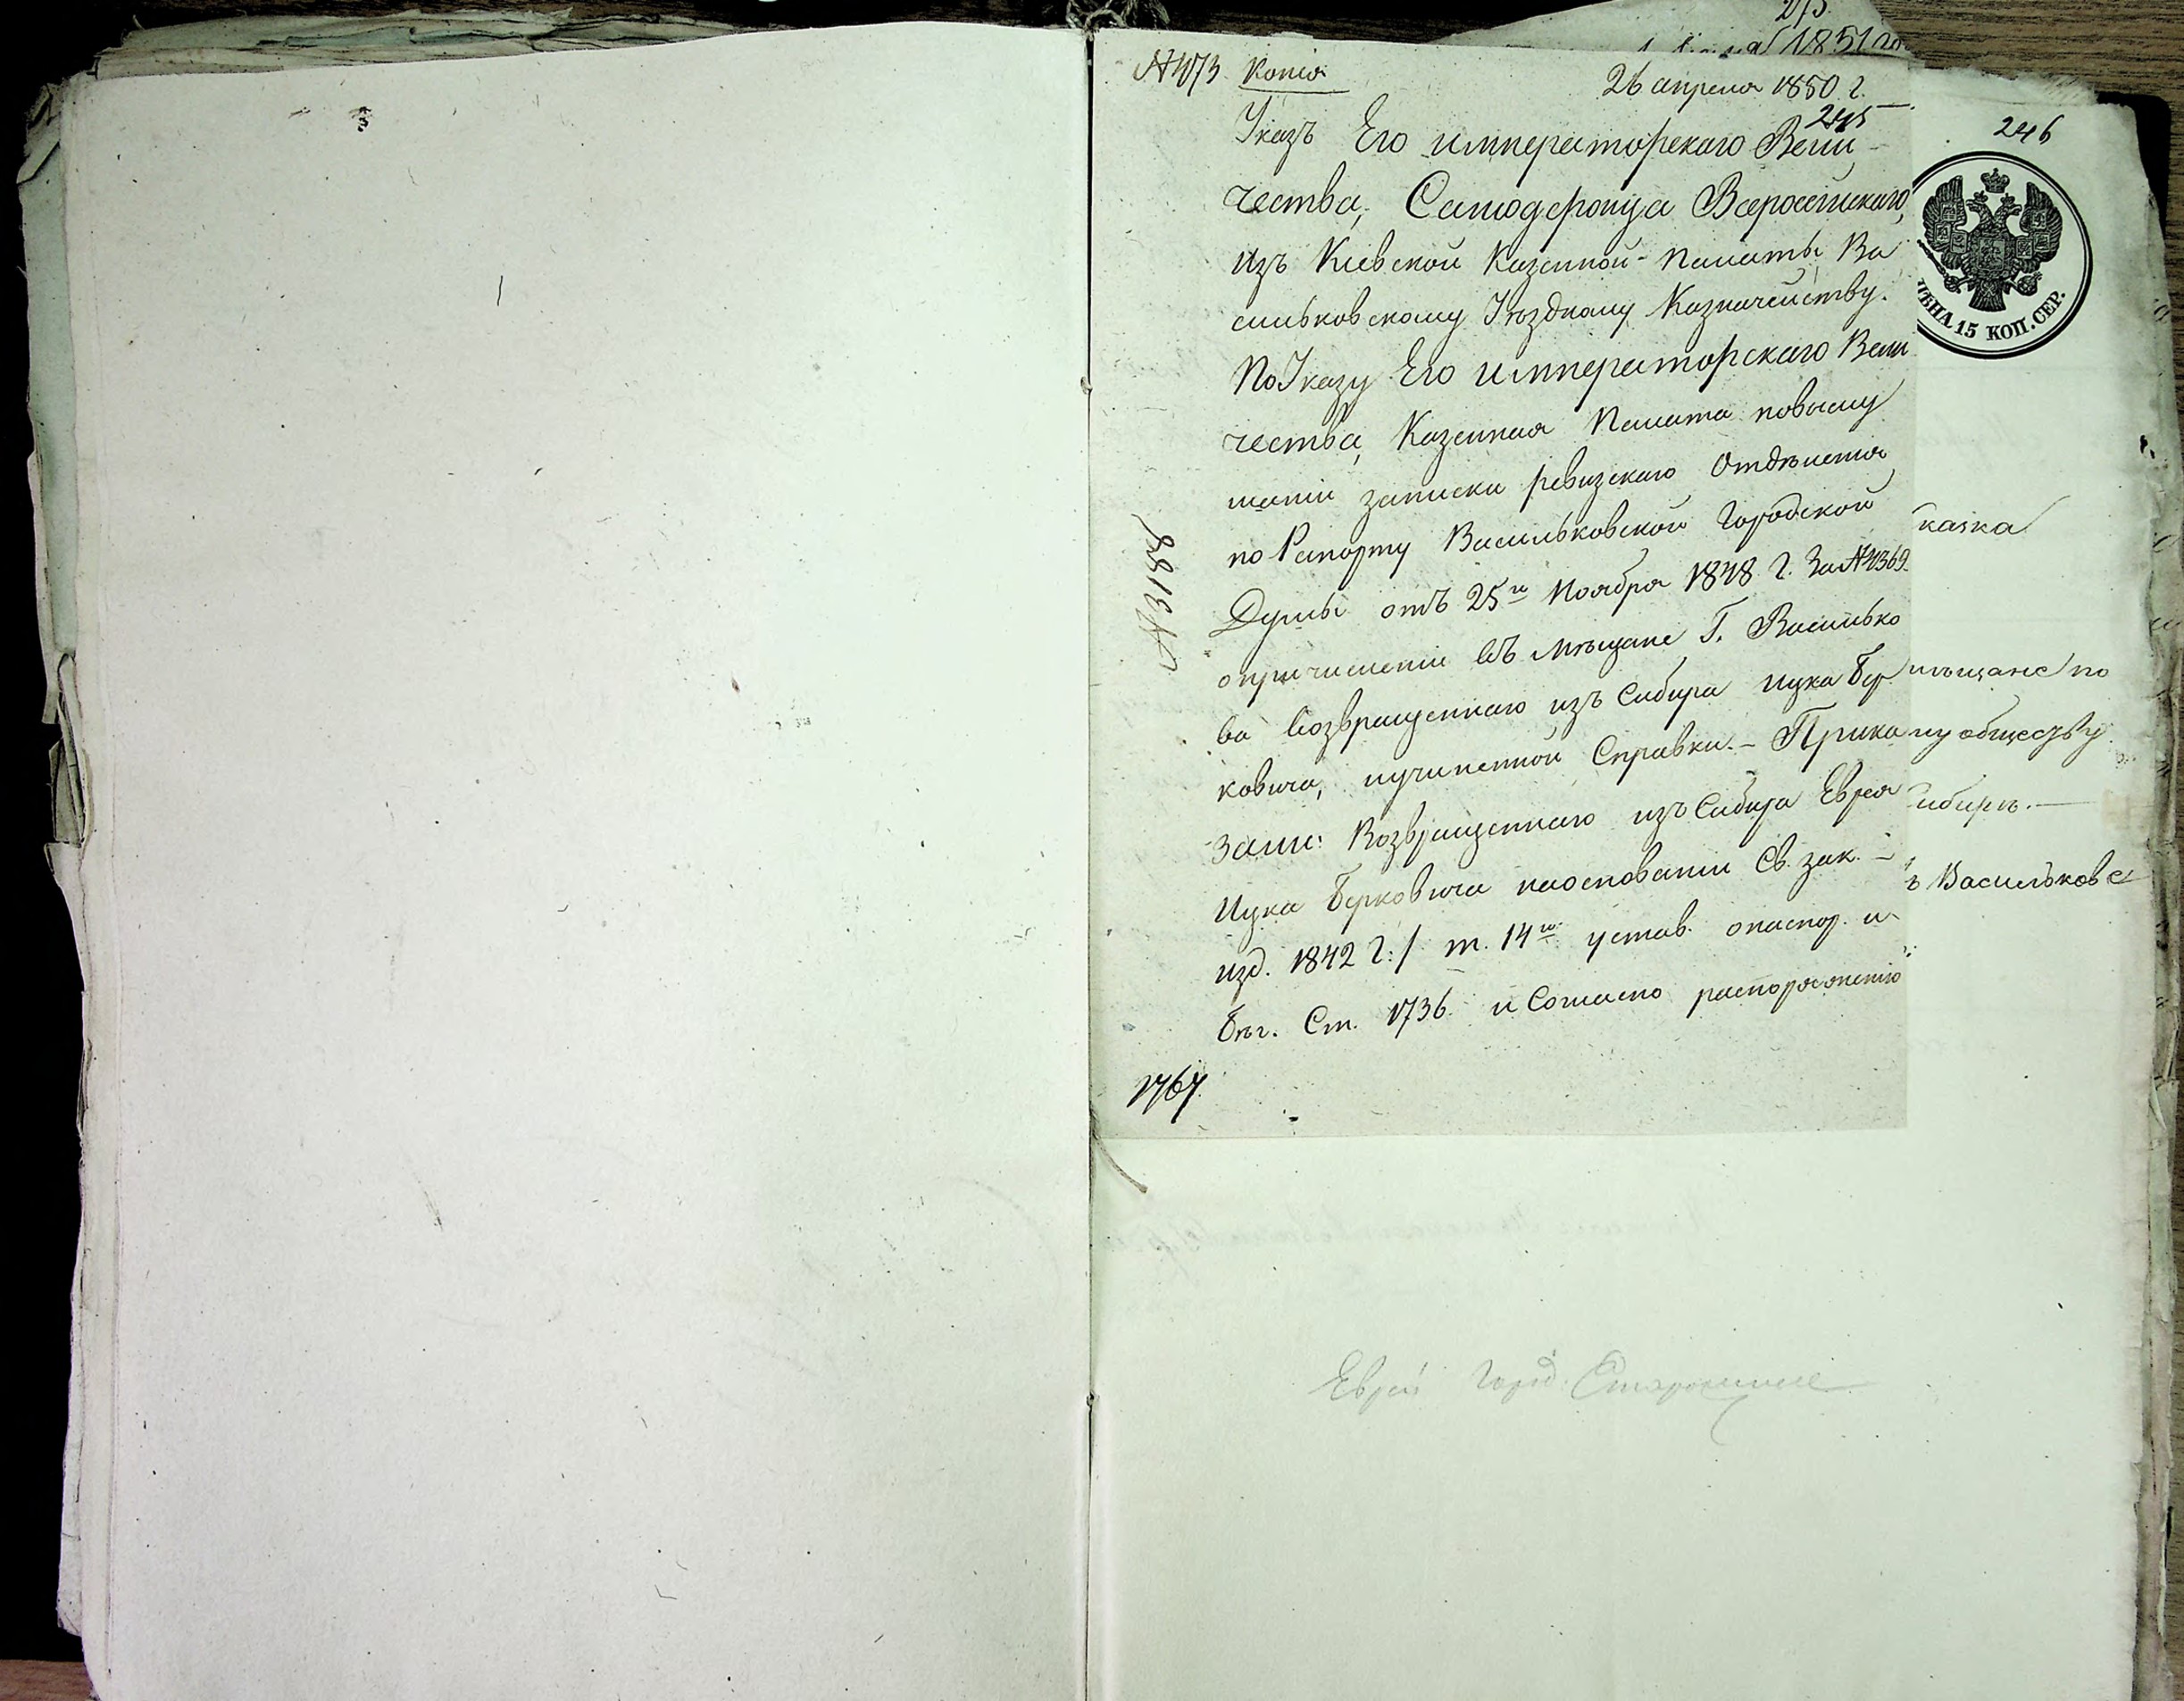 275.
1851 го
№ 473 Копія
26 апреля 1850 г.
245
Указъ Его императорскаго Вели-
чества, Самодержца Всероссійскаго,
изъ Кіевской Казенной Палаты Ва
сильковскому Уѣздному Казначейству.
По Указу Его императорскаго Вели
чества, Казенная Палата по выслу
шаніи записки ревизскаго Отдѣленія
по Рапорту Васильковской Городской
Думы отъ 25го Ноября 1848 г. За № 4369
о причисленіи въ мѣщане Г. Василько
ва возвращеннаго изъ Сибира Ицка Бер
ковича, и учиненной Справки. – Прика
зали: Возвращеннаго изъ Сибира Еврея
Ицка Берковича на основаніи Св. зак. –
изд. 1842 г:/ т. 14го устав. о паспор. и
бѣг. Ст. 1736. и Согласно распоряженію
1767.
246
ЦѢНА 15 КОП. СЕР.
казка
мѣщане по
ну обществу
Сибирь. —
ъ Васильковѣ
Еврей Город.